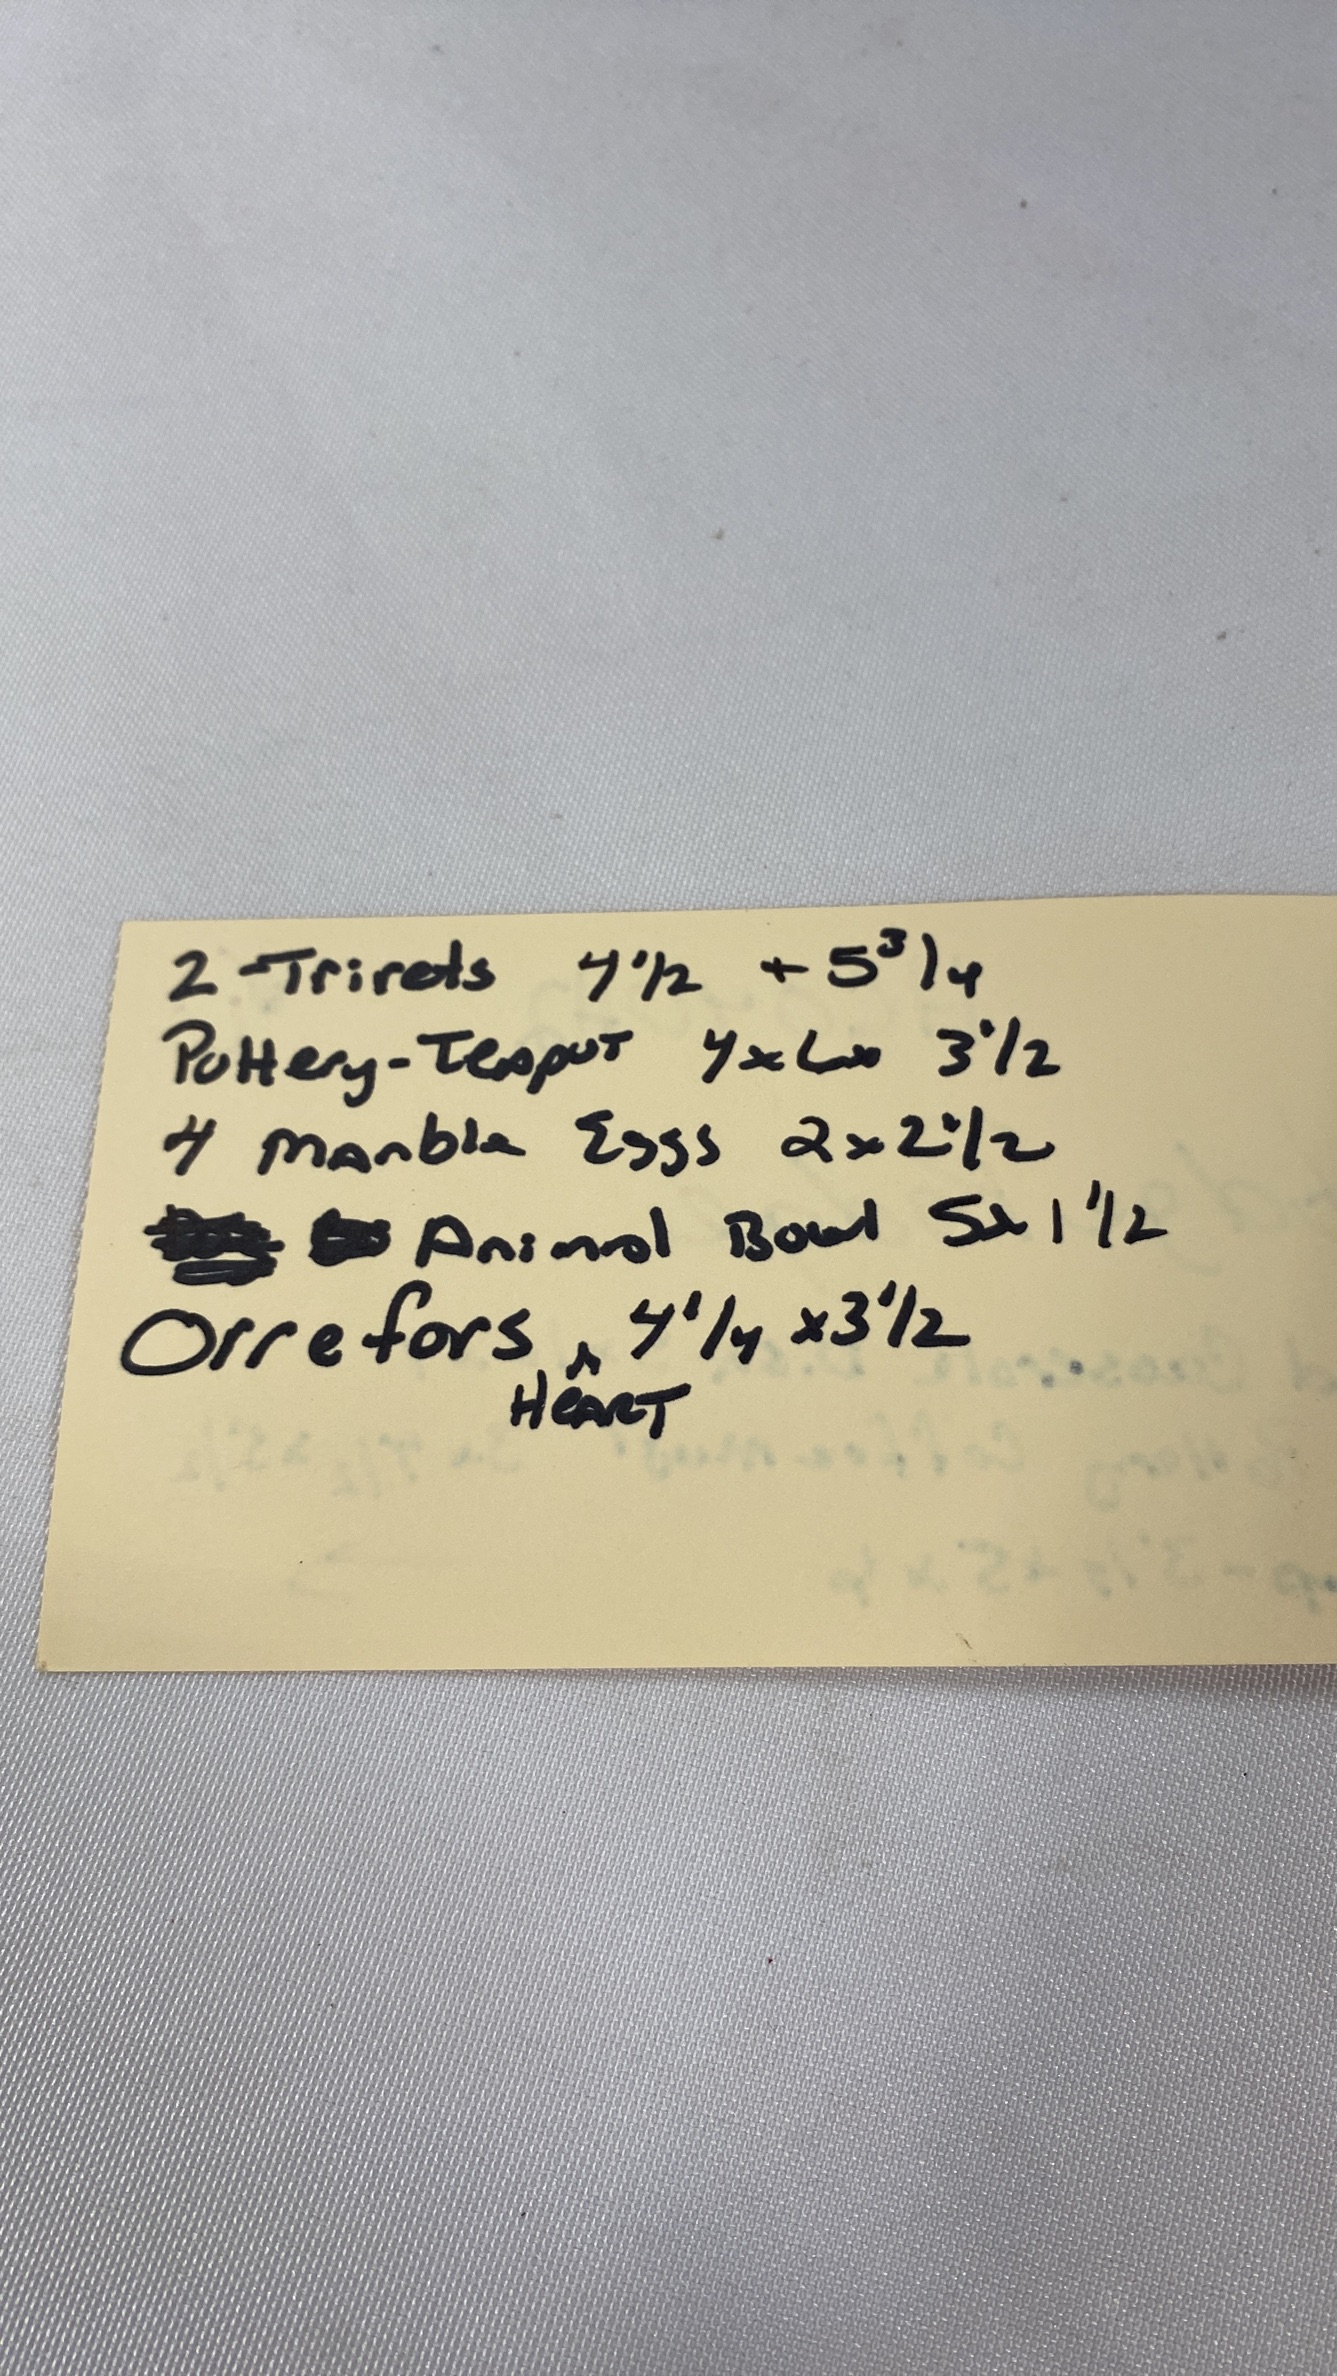 2 - Trirets 4 1/2 + 5 3/4
Pottery - Teapot 4 x 6 x 3 1/2
4 Marble Eggs 2 x 2 1/2
Animal Bowl 5 x 1 1/2
Orrefors ^ 4 1/4 x 3 1/2
Heart